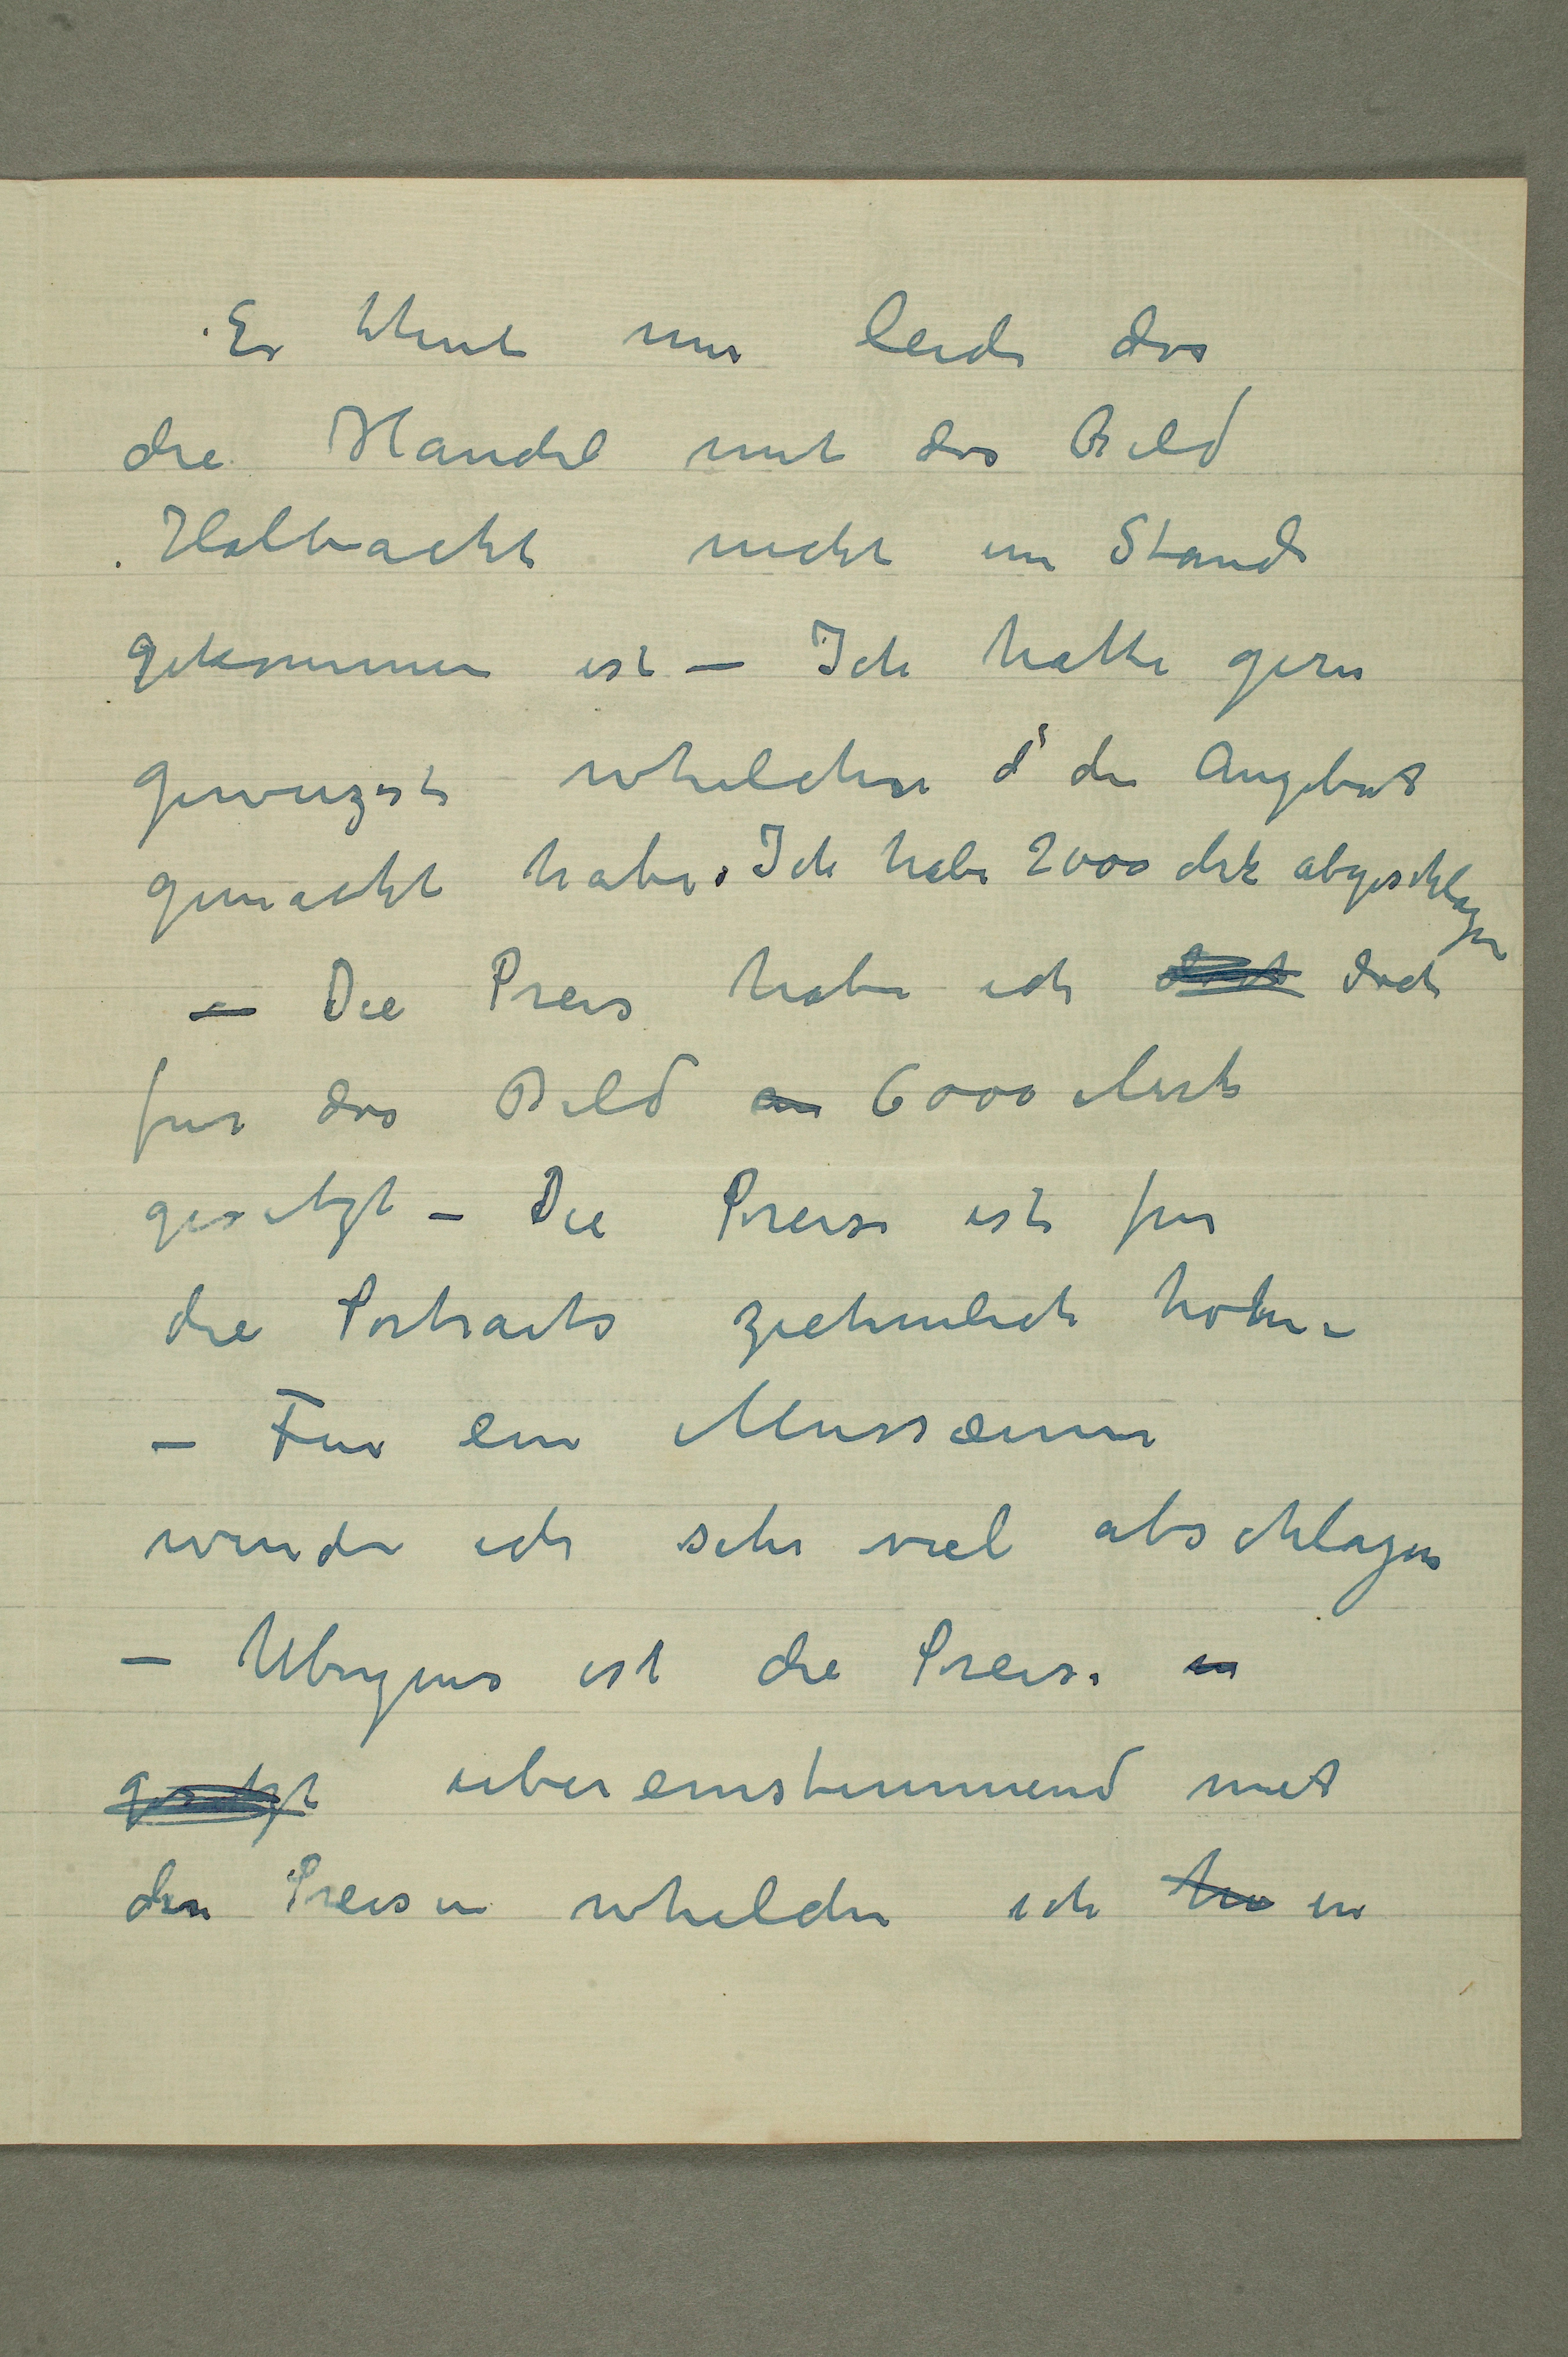 Es thut mir leid das
die Handel mit das Bild
Halbackt nicht im Stand
gekommen ist – Ich hatte gern
gewuzst whelchen d die Angebot
gemacht habe. Ich habe 2000 Mk abgeschlagen
– Die Preis habe ich doch
fur das Bild an 6000 Mark
gesetzt – Die Preise ist fur
die Portraits ziehmlich hohe –
– Fur ein Mussæum
wurde ich sehr viel abschlagen
– Ubrigens ist die Preise in
gesetzt übereinstimmend met
den Preisen whelche ich in